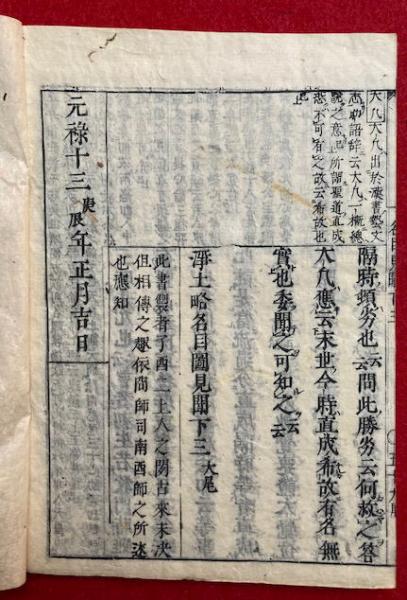 隔時頓劣也云云問此勝劣云何救之答
大凡應云末世今時直成希故有名無
實也委聞之可知之云云
淨土略名目圖見聞下三大尾
此書製者了酉二上人之開古來未決
但相傳之趣依問師司南酉師之所述
也應知
元祿十三庚辰年正月吉日
大凡大凡出於漢書藝文
志助語辞云大凡一概總
說之意也所謂聖道直成
悉不可有之故云希故也